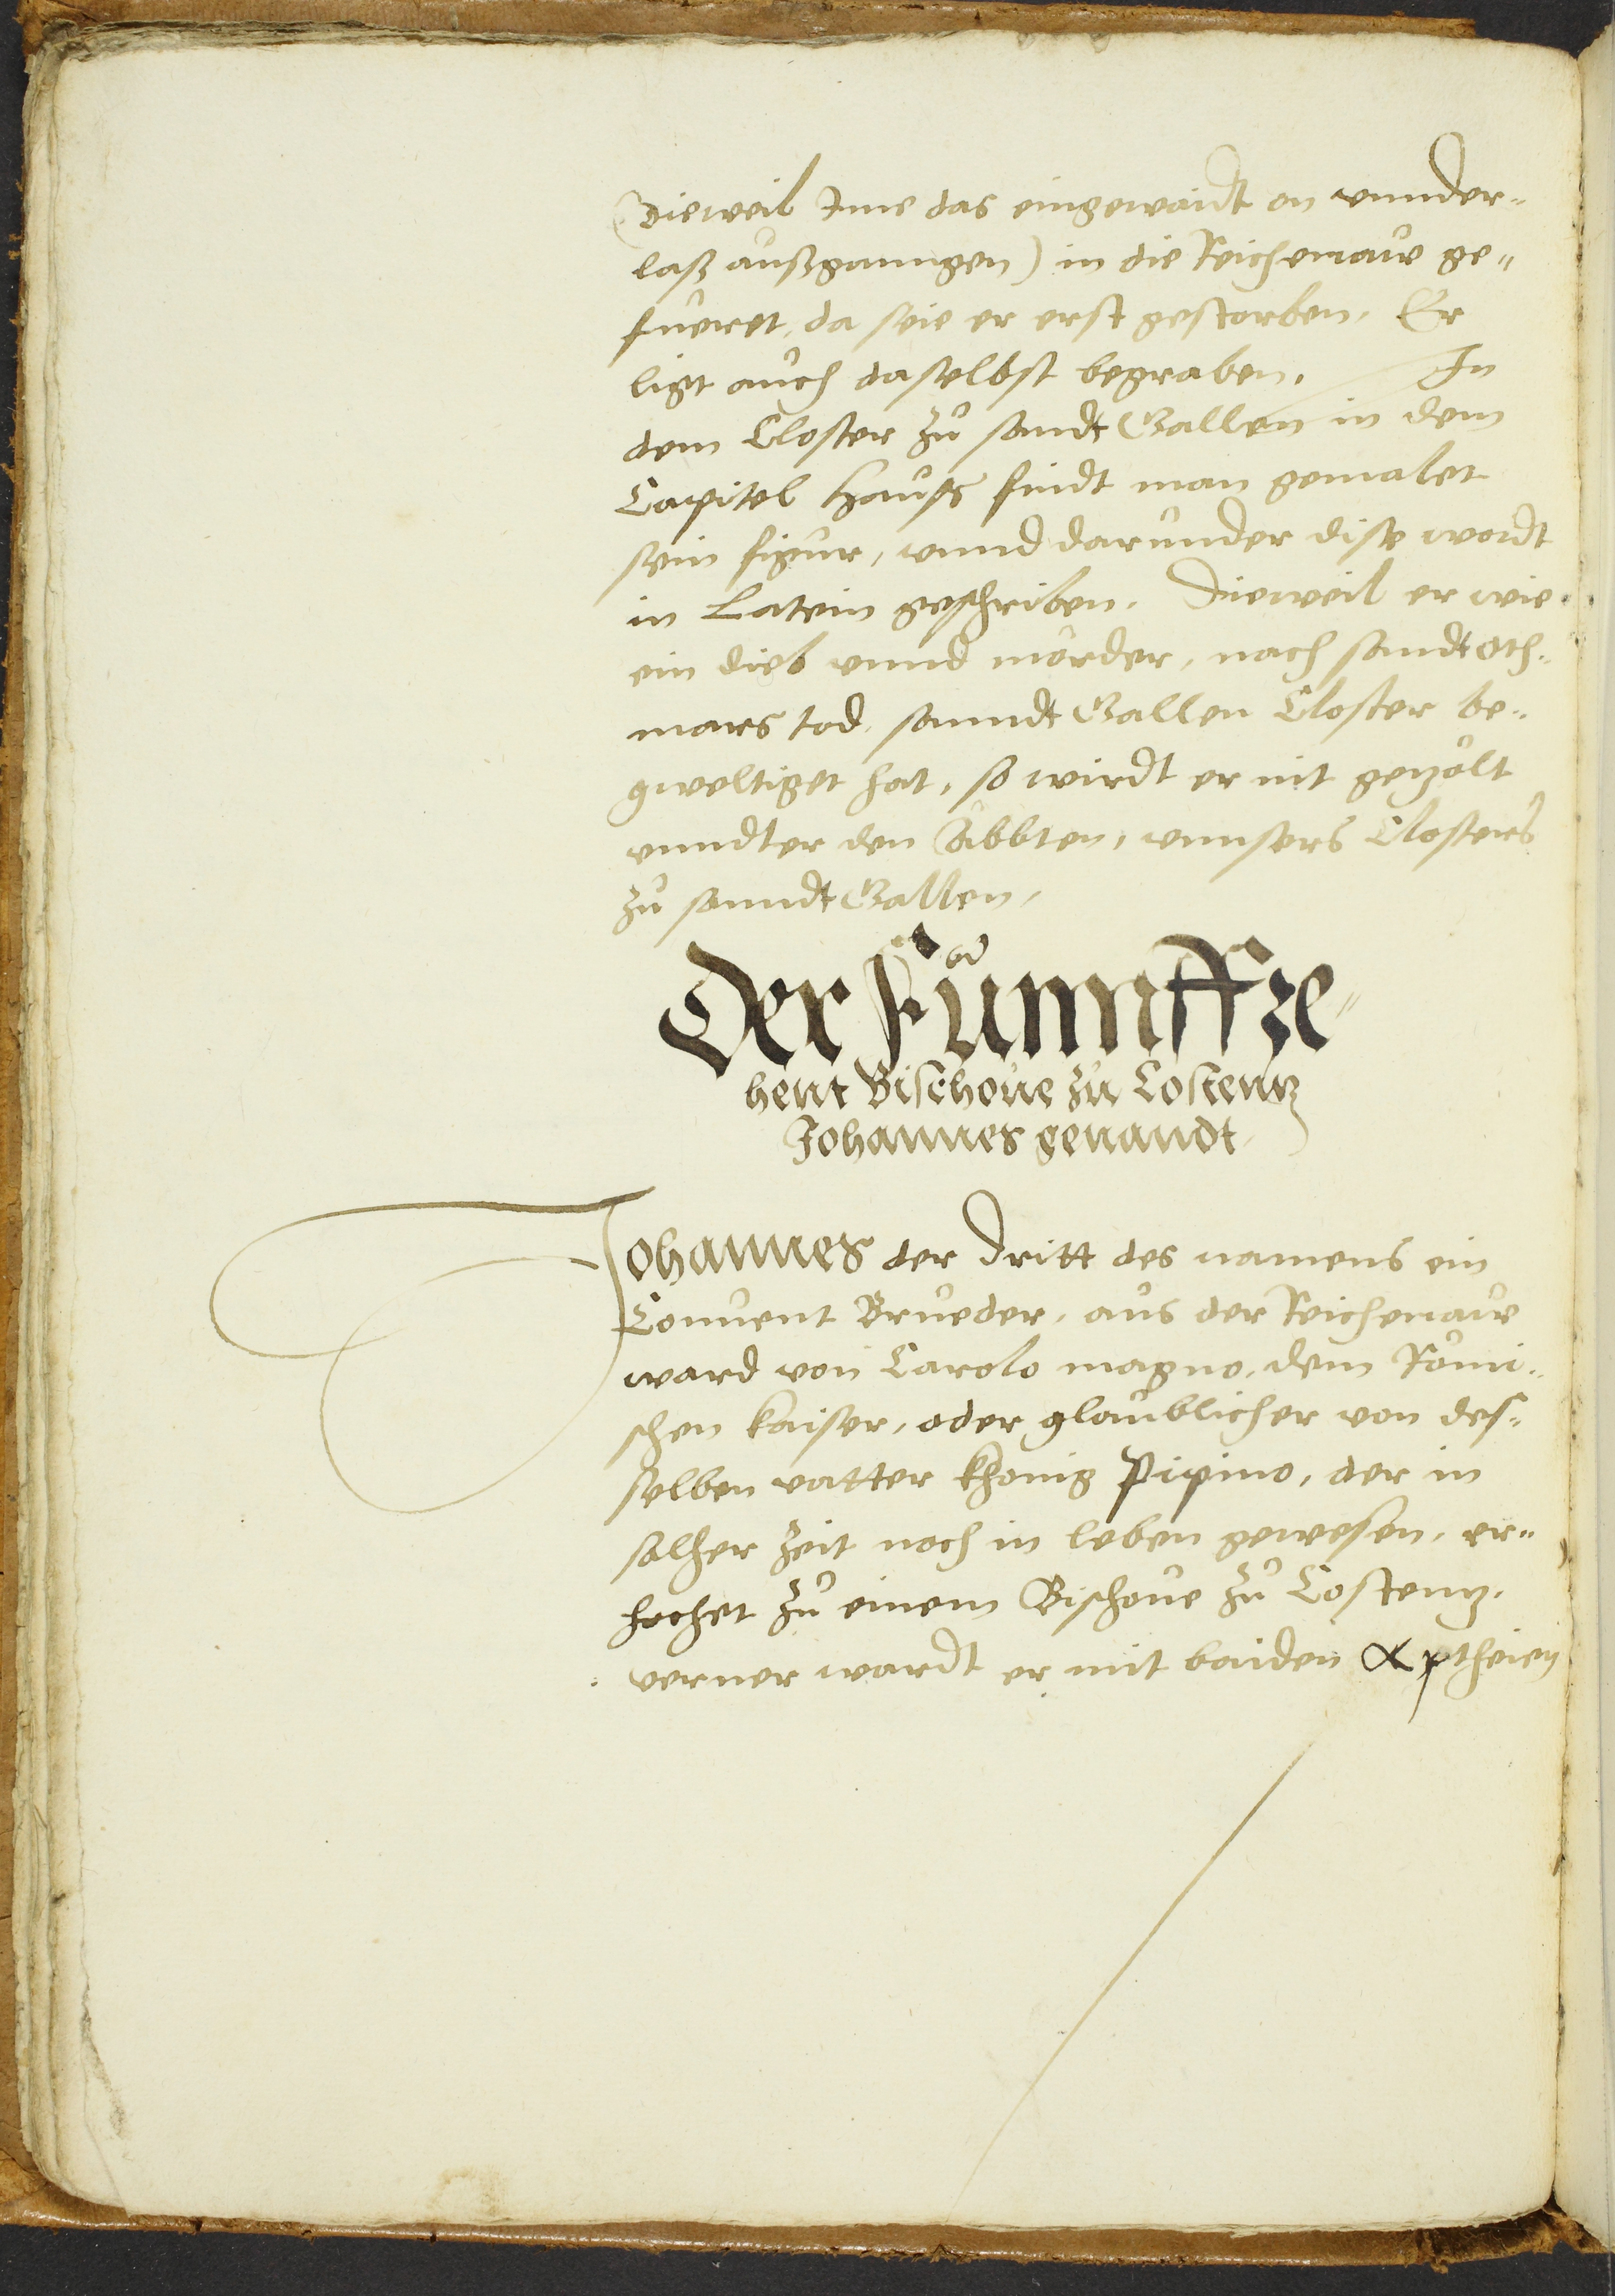 (Dieweil Ime das eingewaidt on vnnder-
laß außganngen) in die Reichenaw ge-
fueret, da seie er erst gestorben, Er
ligt auch daselbst begraben. In
dem Closter zů sandt Gallen in dem
Capitel Hauss findt man gemalet
sein figur, vnnd darunder dise wordt
in Latein geschriben. Dieweil er wie
ein dieb vnnd mörder, nach sandt Oth-
mars tod sanndt Gallen Closter be-
gweltiget hat, so wirdt er nit gezölt
vnndter den Äbbten, vnnsers Closters
zů sanndt Gallen,
Der Fünnffze-
hent Bischoue zů Costentz
Johannes genandt
Johannes der Dritt des namens ein
Conuent Brueder, aus der Reichenaw
ward von Carolo magno, dem Römi-
schen kaiser, oder glaublicher von des-
selben vatter khonig Pipino, der in
solher zeit noch in leben gewesen, er-
hochet zů einem Bischoue zů Costentz,
verner wardt er mit baiden Aptheien